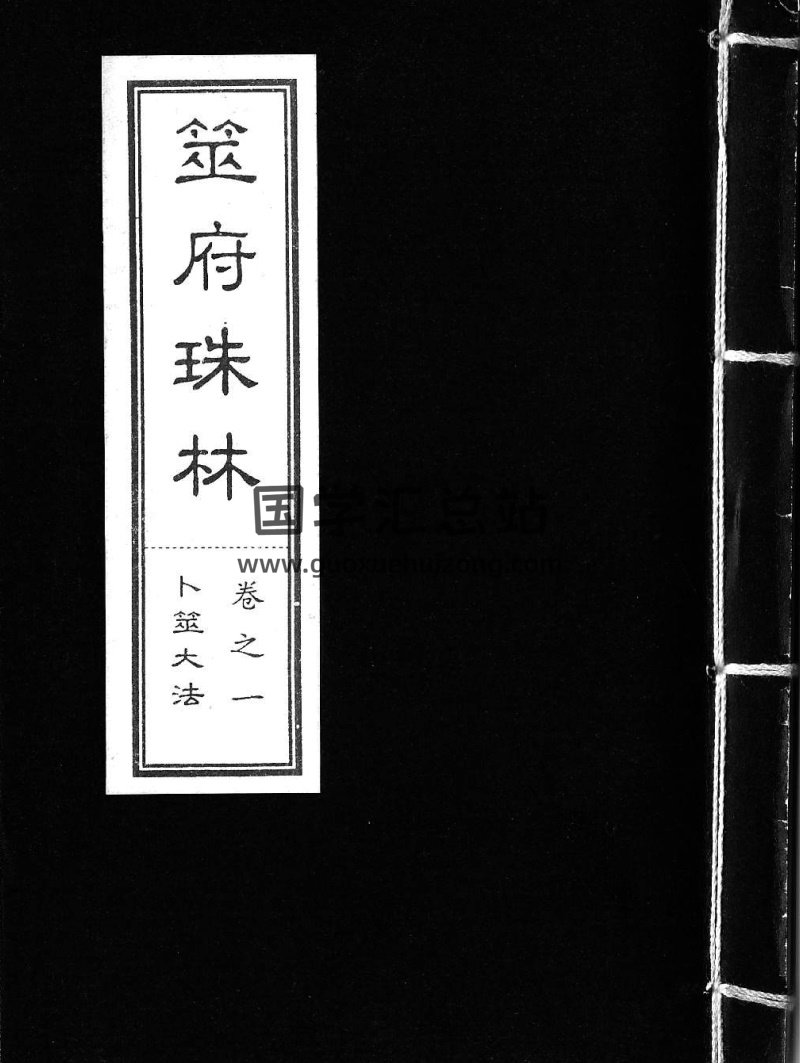 筮府珠林
卷之一
卜筮大法
国学汇总站
www.guoxuehuizong.com